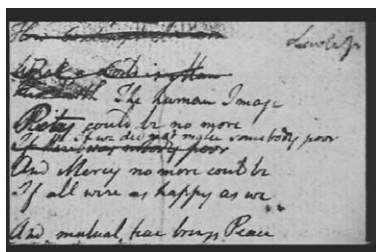 The human Image
Pity could be no more
If we did not make somebody poor
If there was nobody poor
And Mercy no more could be
If all were as happy as we
And mutual fear brings Peace